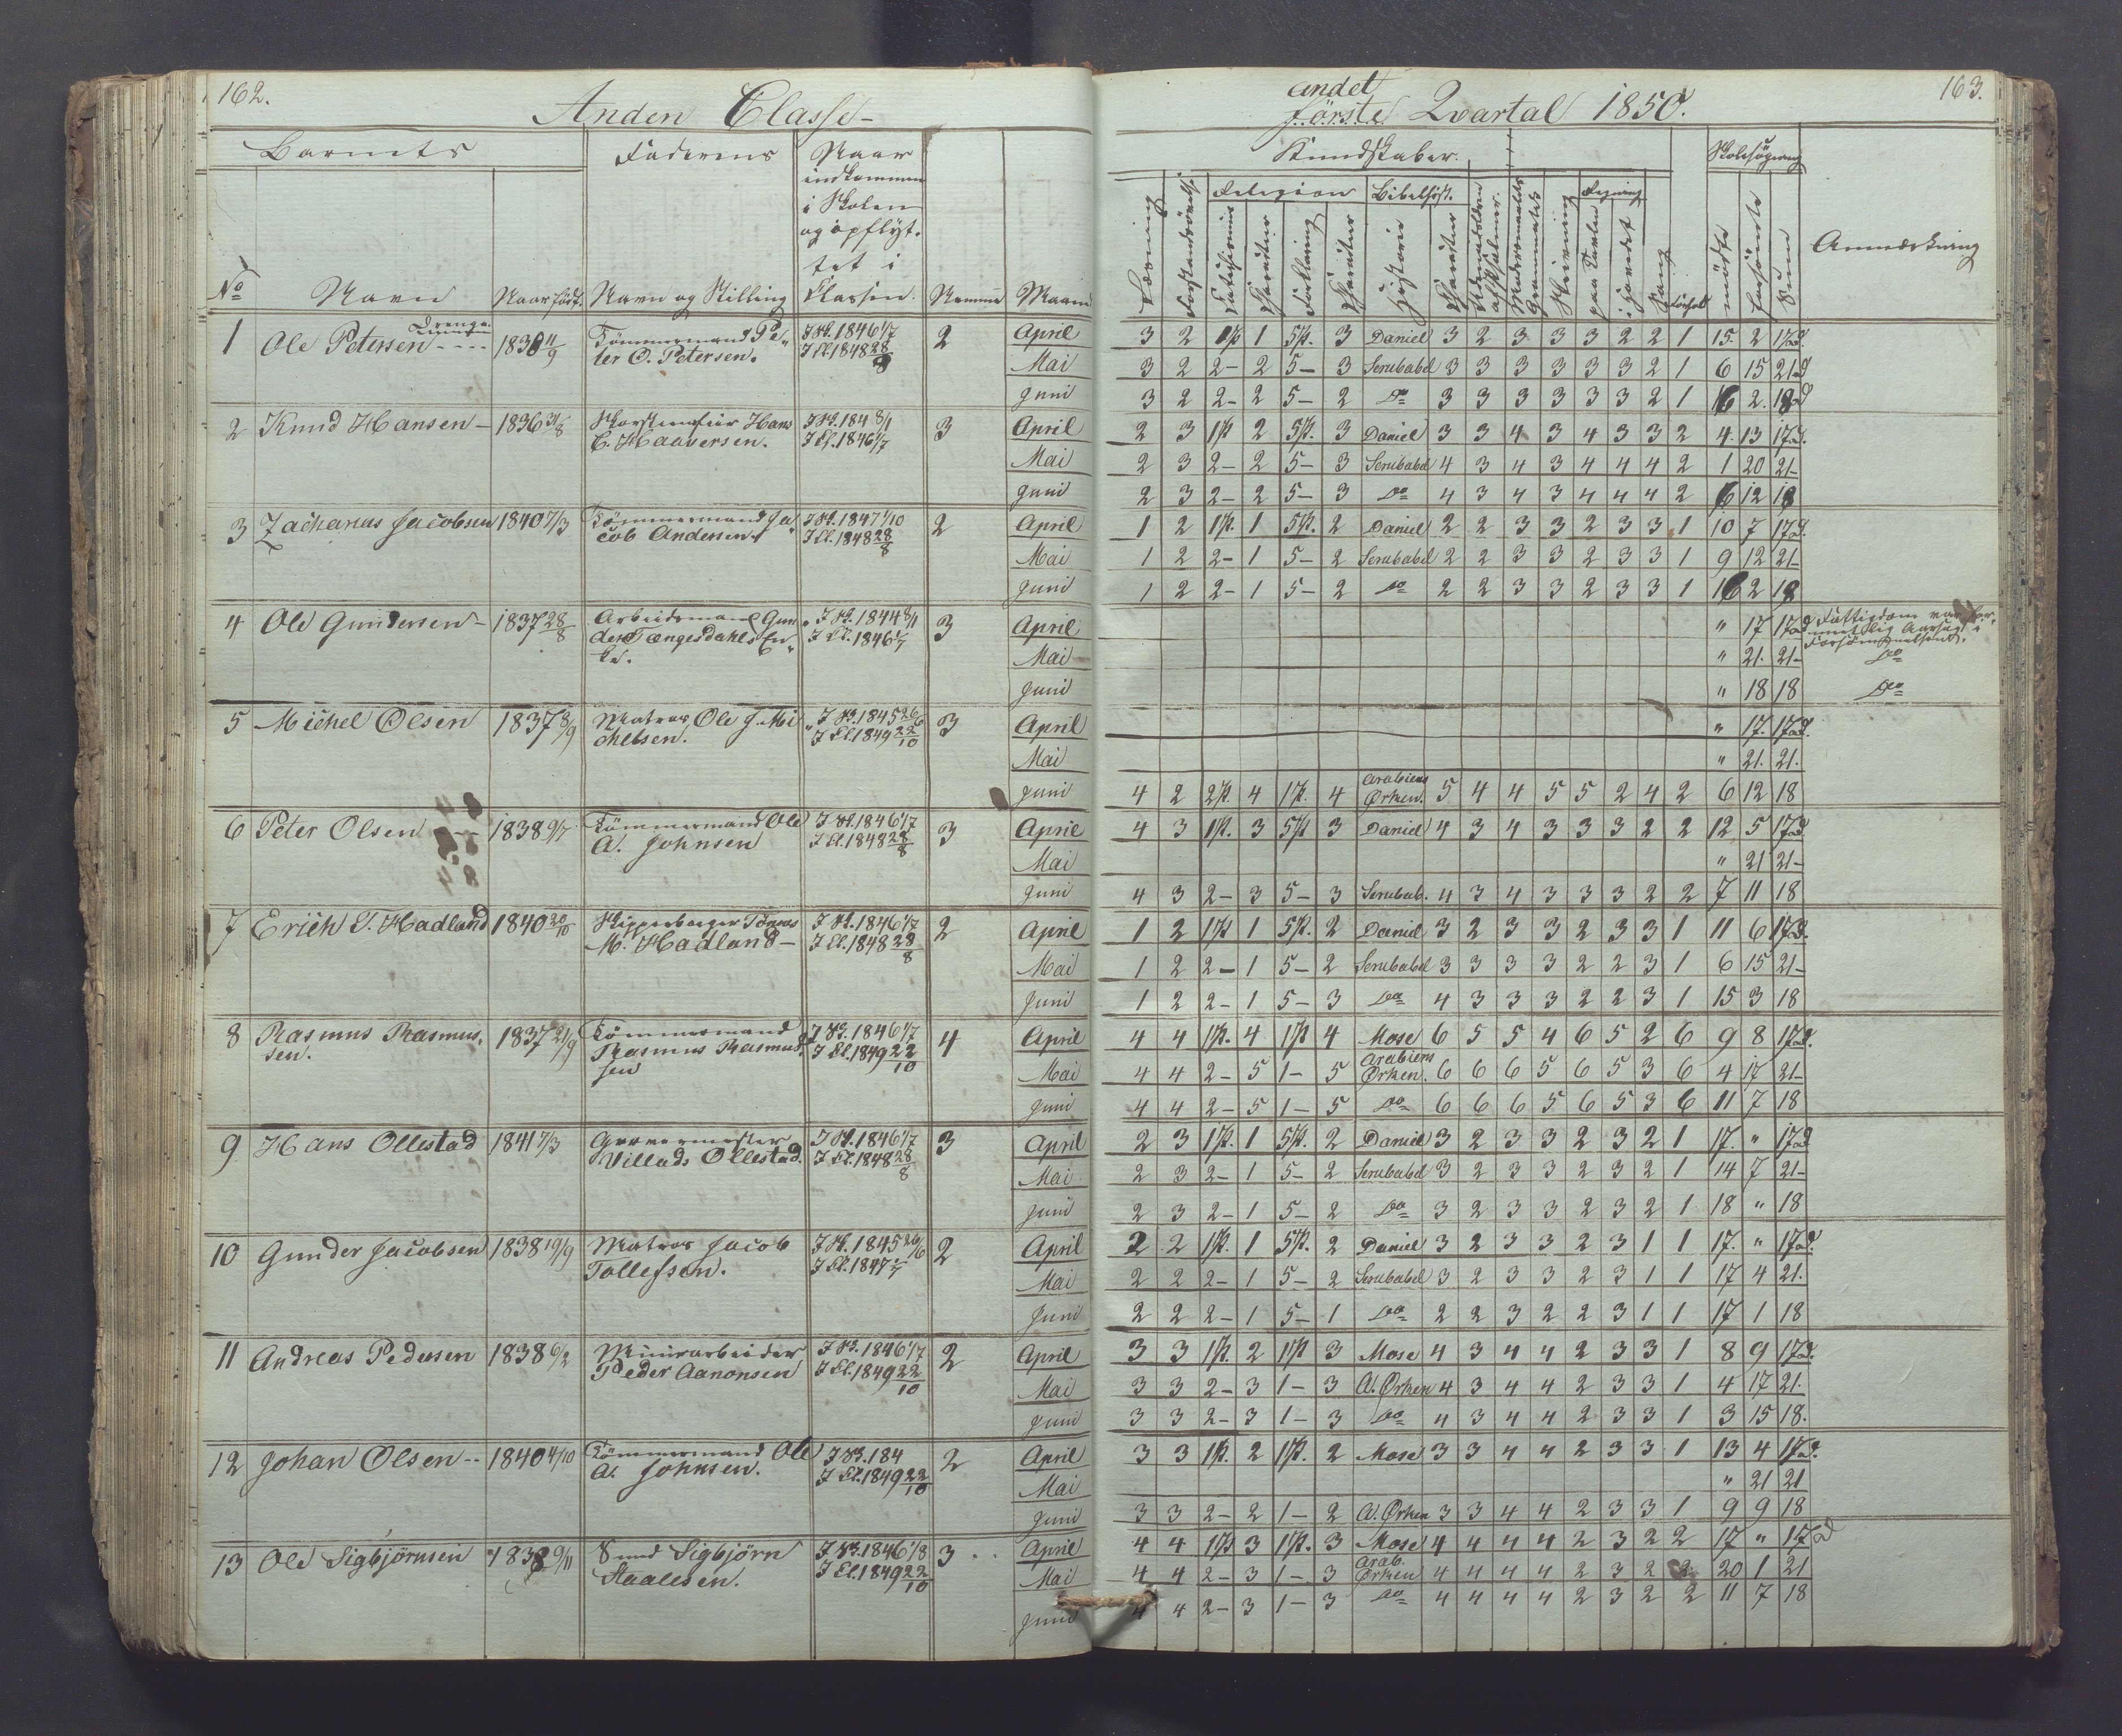 162.
Anden Classe-
Barnets
Faderens
Naar
indkommen
i Skolen
og opflyt-
tet i
Classen.
No
Navn
Naar født.
Navn og Stilling
Nemme
Maaned
Drenge
1 Ole Petersen 1838 11/9 Tømmermand Pe-
ter O. Petersen. I Sk. 1846 1/7
I Cl. 1848 28/8 2 April
Mai
Juni
2 Knud Hansen - 1836 31/8 Skorsteinfeier Hans
C. Haaversen. I Sk. 184 8/1
I Cl. 1846 1/7 3 April
Mai
Juni
3 Zacharias Jacobsen 1840 7/3 Tømmermand Ja-
cob Andersen. I Sk. 1847 1/10
I Cl. 1848 28/8 2 April
Mai
Juni
4 Ole Gundersen - 1837 28/8 Arbeidsmand Gun-
der Tængesdahls En-
ke. I Sk. 1844 8/1
I Cl. 1846 1/7 3 April
Mai
Juni
5 Michel Olsen 1837 8/9 Matros Ole J. Mi-
chelsen. I Sk. 1845 26/6
I Cl. 1849 22/10 3 April
Mai
Juni
6 Peter Olsen 1838 9/7 Tømmermand Ole
A. Johnsen I Sk. 1846 1/7
I Cl. 1848 28/8 3 April
Mai
Juni
7 Erich T. Hadland 1840 20/10 Skipperborger Tønnes
M. Hadland - I Sk. 1846 1/7
I Cl. 1848 28/8 2 April
Mai
Juni
8 Rasmus Rasmus-
sen. 1837 21/9 Tømmermand
Rasmus Rasmus-
sen I Sk. 1846 1/7
I Cl. 1849 22/10 4 April
Mai
Juni
9 Hans Ollestad 1841 7/3 Garvermester
Villads Ollestad. I Sk. 1846 1/7
I Cl. 1848 28/8 3 April
Mai
Juni
10 Gunder Jacobsen 1838 19/9 Matros Jacob
Tollefsen. I Sk. 1845 26/6
I Cl. 1847 1/7 2 April
Mai
Juni
11 Andreas Pedersen 1838 6/2 Muurarbeider
Peder Aanonsen I Sk. 1846 1/7
I Cl. 1849 22/10 2 April
Mai
Juni
12 Johan Olsen -- 1840 4/10 Tømmermand Ole
A. Johnsen. I Sk. 184
I Cl. 1849 22/10 2 April
Mai
Juni
13 Ole Sigbjörnsen 1838 9/11 Smed Sigbjörn
Staalesen. I Sk. 1846 1/8
I Cl. 1849 22/10 3 April
Mai
Juni
163.
andet
Första Qvartal 1850.
Kundskaber.
Skolesøgning
Religion
Bibelhist.
Regning
Læsning
Forstandsøvelse
Catechismus
Charakter
Forklaring
Charakter
Historie
Charakter
Udenadslæren
af Psalmer.
Modersmaalets
Grammatik
Skrivning
paa Tavlen
i Hovedet
Sang
Forhold
mødte
forsømte
Sum
Anmærkning
3 2 1P. 1 5P. 3 Daniel 3 2 3 3 3 2 2 1 15 2 17D.
3 2 2- 2 5- 3 Serubabel 3 3 3 3 3 3 2 1 6 15 21D
3 2 2- 2 5- 2 Do 3 3 3 3 3 3 2 1 16 2. 18D
2 3 1P. 2 5P. 3 Daniel 3 3 4 3 4 3 3 2 4. 13 17D.
2 3 2- 2 5- 3 Serubabel 4 3 4 3 4 4 4 2 1 20 21-
2 3 2- 2 5- 3 Do 4 3 4 3 4 4 4 2 6 12 18
1 2 1P. 1 5P. 2 Daniel 2 2 3 3 2 3 3 1 10 7 17D.
1 2 2- 1 5- 2 Serubabel 2 2 3 3 2 3 3 1 9 12 21-
1 2 2- 1 5- 2 Do 2 2 3 3 2 3 3 1 16 2 18
" 17 17D Fattigdom var for-
mentlig Aarsag i
Forsømmelsen.
" 21. 21- Do
" 18 18 Do
" 17. 17D.
" 21. 21.
4 2 2P. 4 1P. 4 Arabiens
Ørken. 5 4 4 5 5 2 4 2 6 12 18
4 3 1P. 3 5P. 3 Daniel 4 3 4 3 3 3 2 2 12 5 17D
" 21 21-
4 3 2- 3 5- 3 Serubab. 4 3 4 3 3 3 2 2 7 11 18
1 2 1P. 1 5P. 2 Daniel 3 2 3 3 2 3 3 1 11 6 17D.
1 2 2- 1 5- 2 Serubabel 3 3 3 3 2 2 3 1 6 15 21-
1 2 2- 1 5- 3 Do 4 3 3 3 2 2 3 1 15 3 18
4 4 1P. 4 1P. 4 Mose 6 5 5 4 6 5 2 6 9 8 17D.
4 4 2- 5 1- 5 Arabiens
Ørken. 6 6 6 5 6 5 3 6 4 17 21-
4 4 2- 5 1- 5 Do 6 6 6 5 6 5 3 6 11 7 18
2 3 1P. 1 5P. 2 Daniel 3 2 3 3 2 3 2 1 17. " 17D
2 3 2- 1 5- 2 Serubabel 3 2 3 3 2 3 2 1 14 7 21-
2 3 2- 1 5- 2 Do 3 2 3 3 2 3 2 1 18 " 18
2 2 1P. 1 5P. 2 Daniel 3 2 3 3 2 3 1 1 17. " 17D.
2 2 2- 1 5- 2 Serubabel 3 2 3 3 2 3 1 1 17 4 21.
2 2 2- 1 5- 1 Do 2 2 3 2 2 3 1 1 17 1 18
3 3 1P. 2 1P. 3 Mose 4 3 4 4 2 3 3 1 8 9 17D.
3 3 2- 3 1- 3 A. Ørken 4 3 4 4 2 3 3 1 4 17 21.
3 3 2- 3 1- 3 Do 4 3 4 4 2 3 3 1 3 15 18.
3 3 1P. 2 1P. 2 Mose 3 3 4 4 2 3 3 1 13 4 17D.
" 21 21
3 3 2- 2 1- 2 A. Ørken 3 3 4 4 2 3 3 1 9 9 18
4 4 1P. 3 1P. 3 Mose 4 4 4 4 2 3 2 2 17 " 17D
4 4 2- 3 1- 3 Arab.
Ørken 4 4 4 4 2 3 2 2 20 1 21
4 4 2- 3 1- 3 Do 4 4 4 4 2 3 2 2 11 7 18